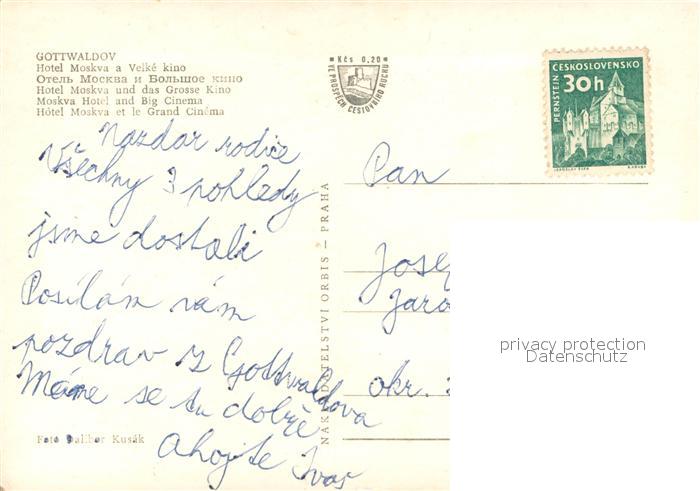 GOTTWALDOV
Hotel Moskva a Velké kino
Отель Москва и Большое кино
Hotel Moskva und das Grosse Kino
Moskva Hotel and Big Cinema
Hôtel Moskva et le Grand Cinéma
Kčs 0,20
VE PROSPĚCH CESTOVNÍHO RUCHU
ČESKOSLOVENSKO
PERNŠTEJN
30h
Nazdar rodiče
Všechny 3 pohledy
jsme dostali
Posílám vám
pozdrav z Gottwaldova
Máme se tu dobře
Ahojte
Foto Dalibor Kusák
NAKLADATELSTVÍ ORBIS – PRAHA
Pan
Jose
Jaro
okr.
privacy protection
Datenschutz